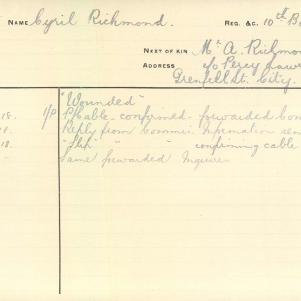 NAME Cyril Richmond. REG. &C. 10th B
NEXT OF KIN Mr A Richmo
ADDRESS c/o Percy Law
Grenfell St. City.
"Wounded"
18. 1/P P/Cable - confirmed - forwarded Com
Reply from Commis. Information sen
18. "Slip" " " confirming cable
Same forwarded Inquirer